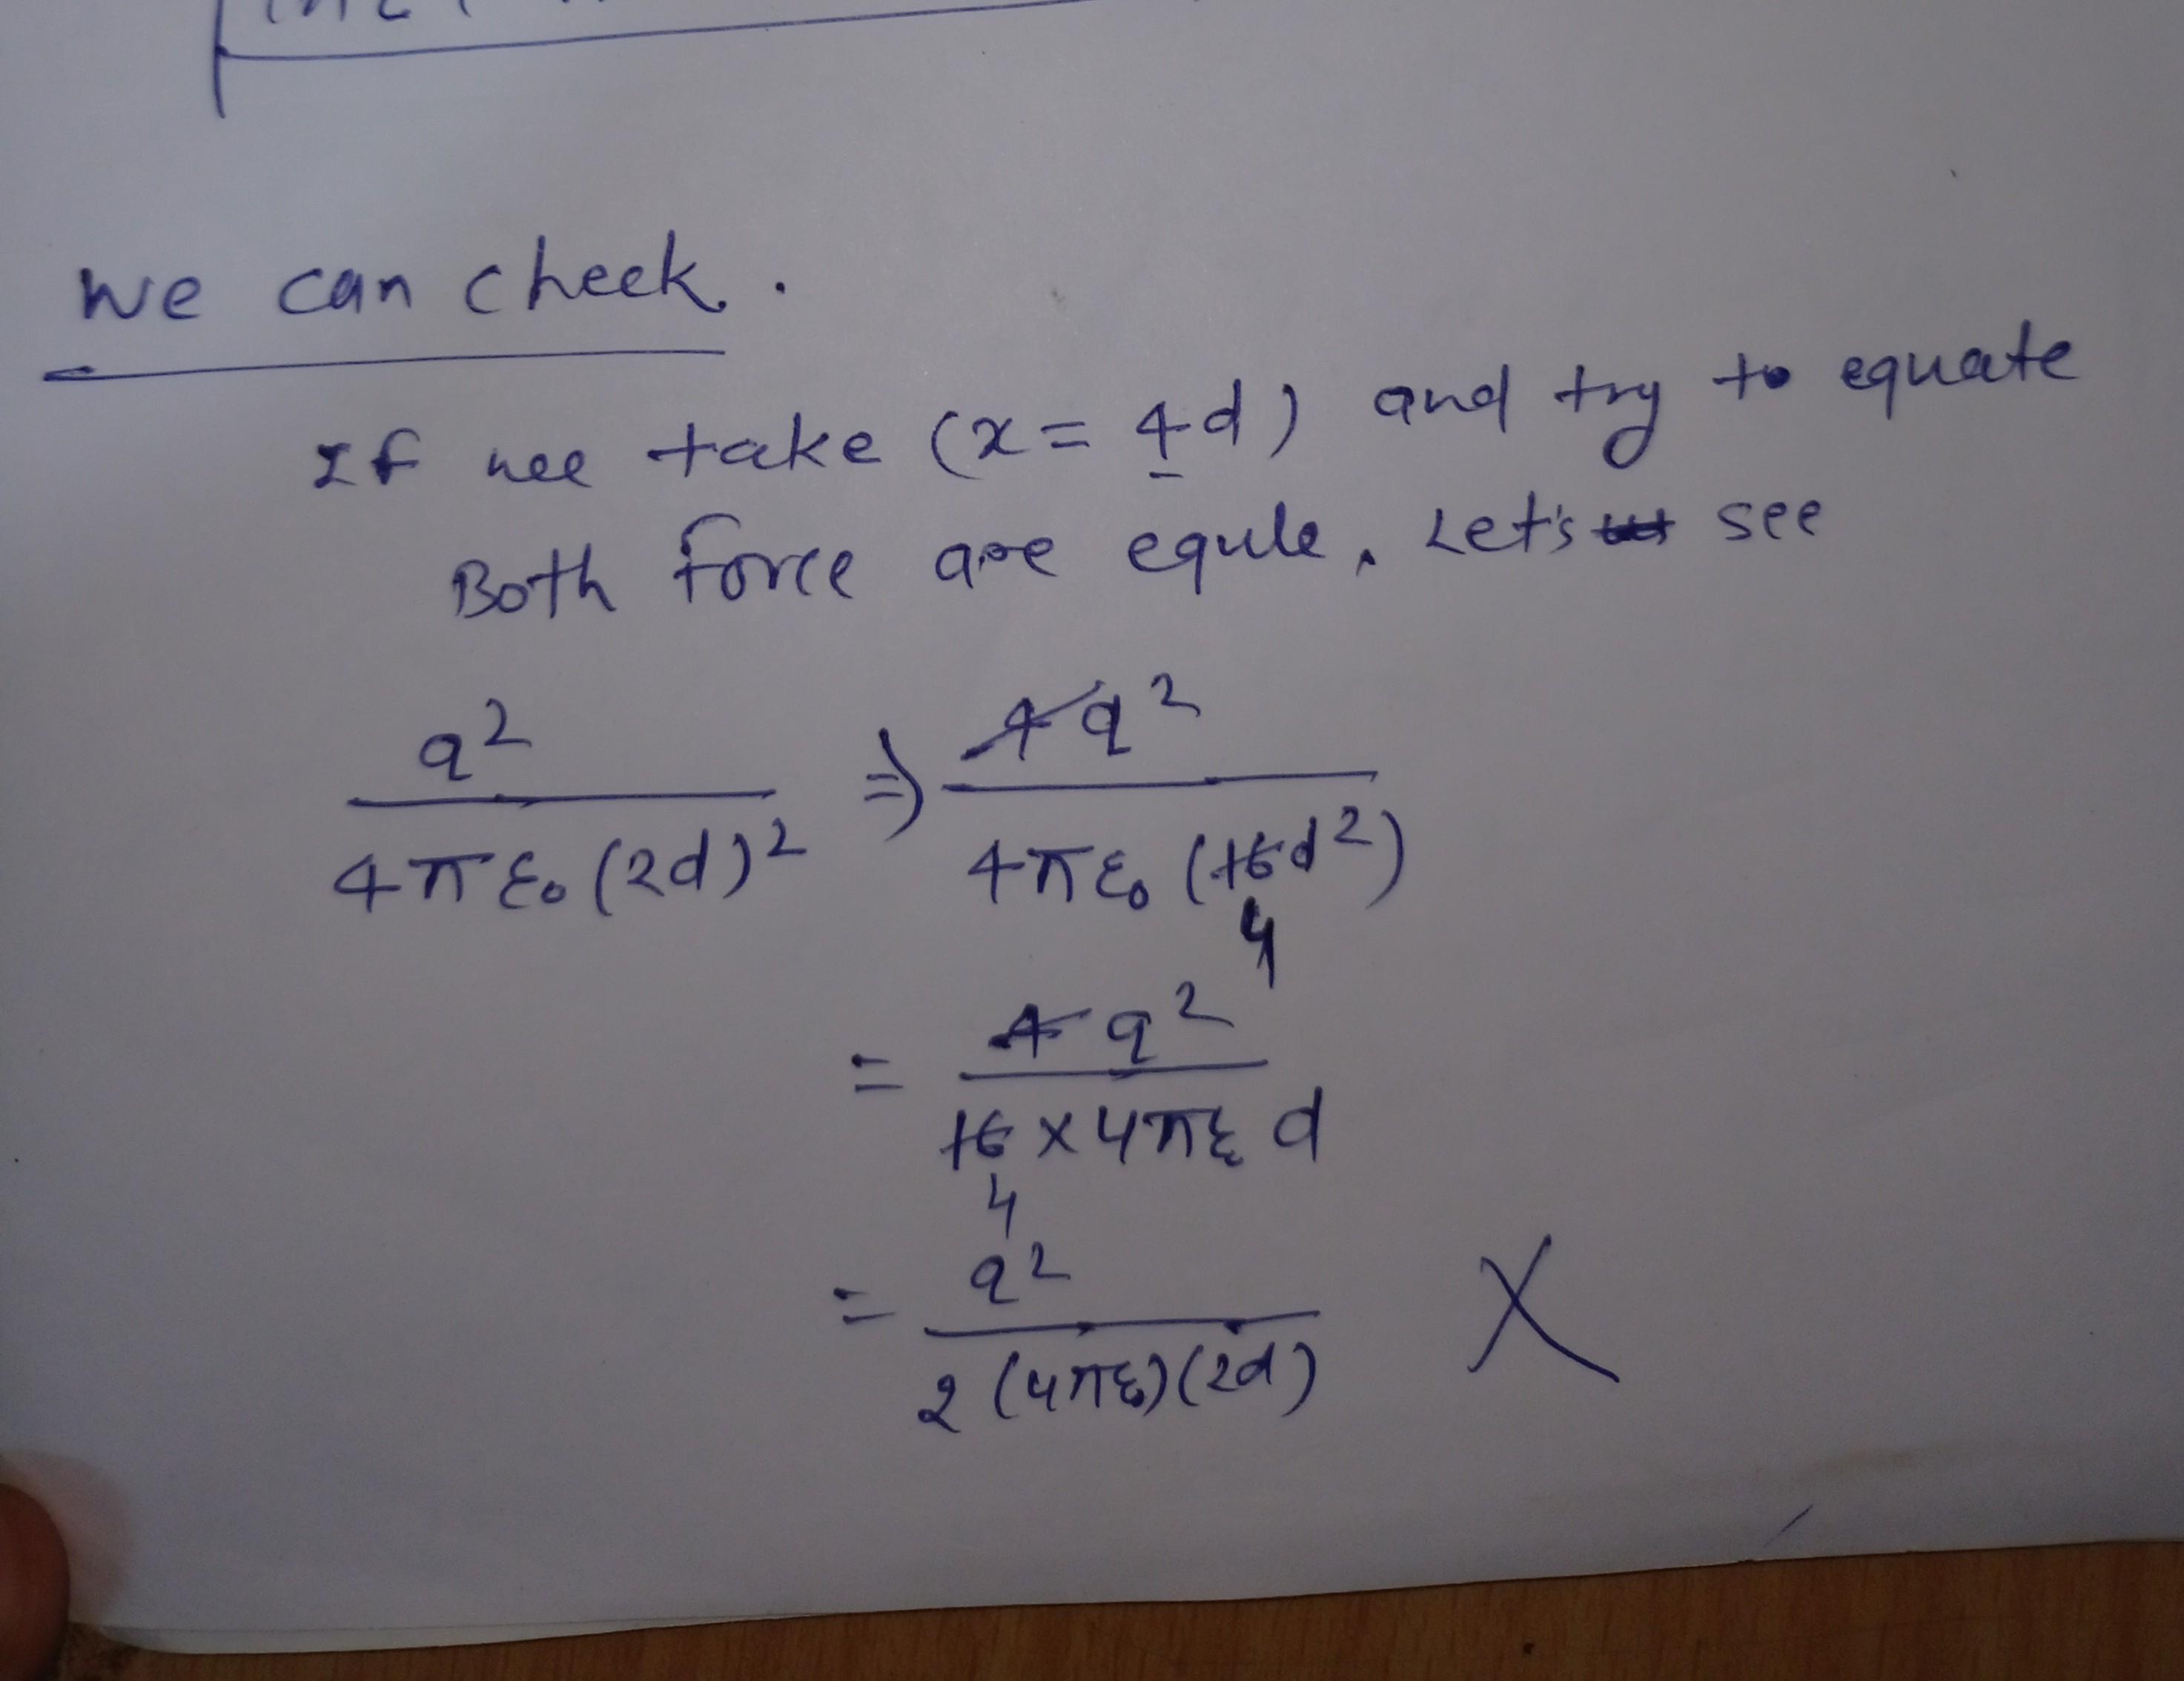 We can check.
If we take (x = 4d) and try to equate
Both force are equle. Let's see
q² / 4πε₀(2d)² ⇒ 4q² / 4πε₀(16d²)
4
= 4q² / 16 × 4πε₀ d
4
= q² / 2(4πε₀)(2d) X